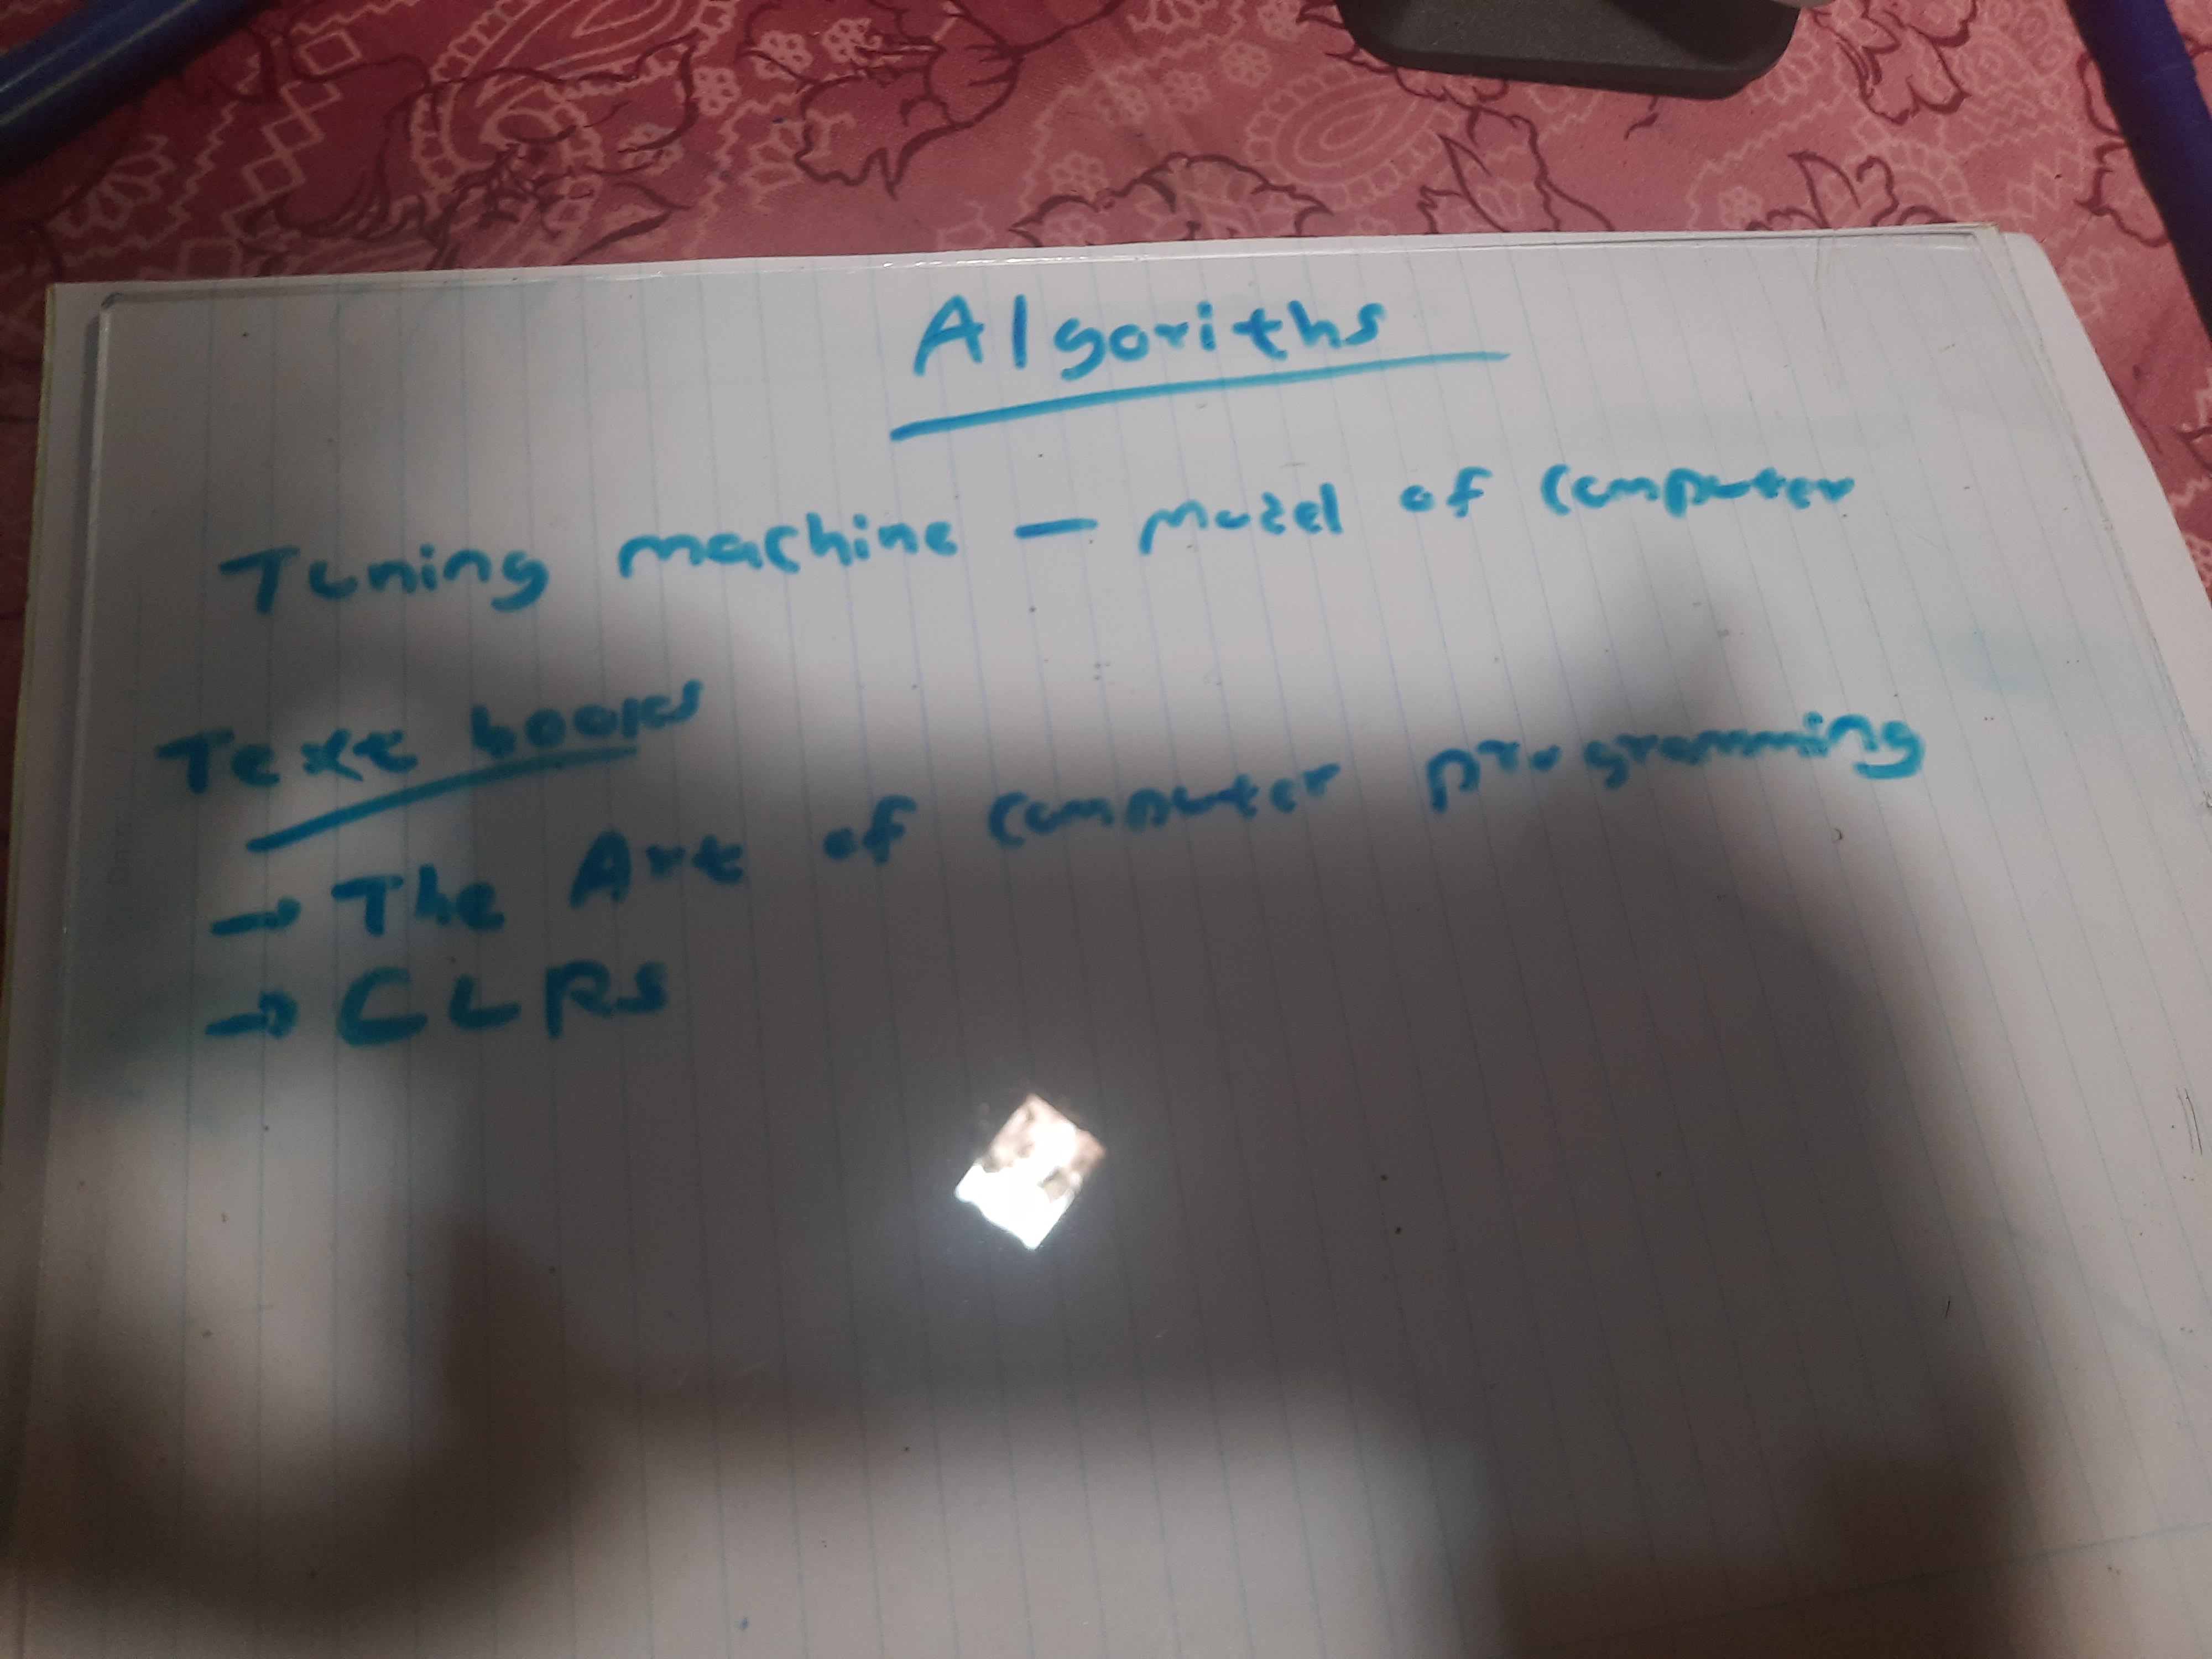 Algoriths
Tuning machine — model of computer
Text books
→ The Art of computer programming
→ CLRS